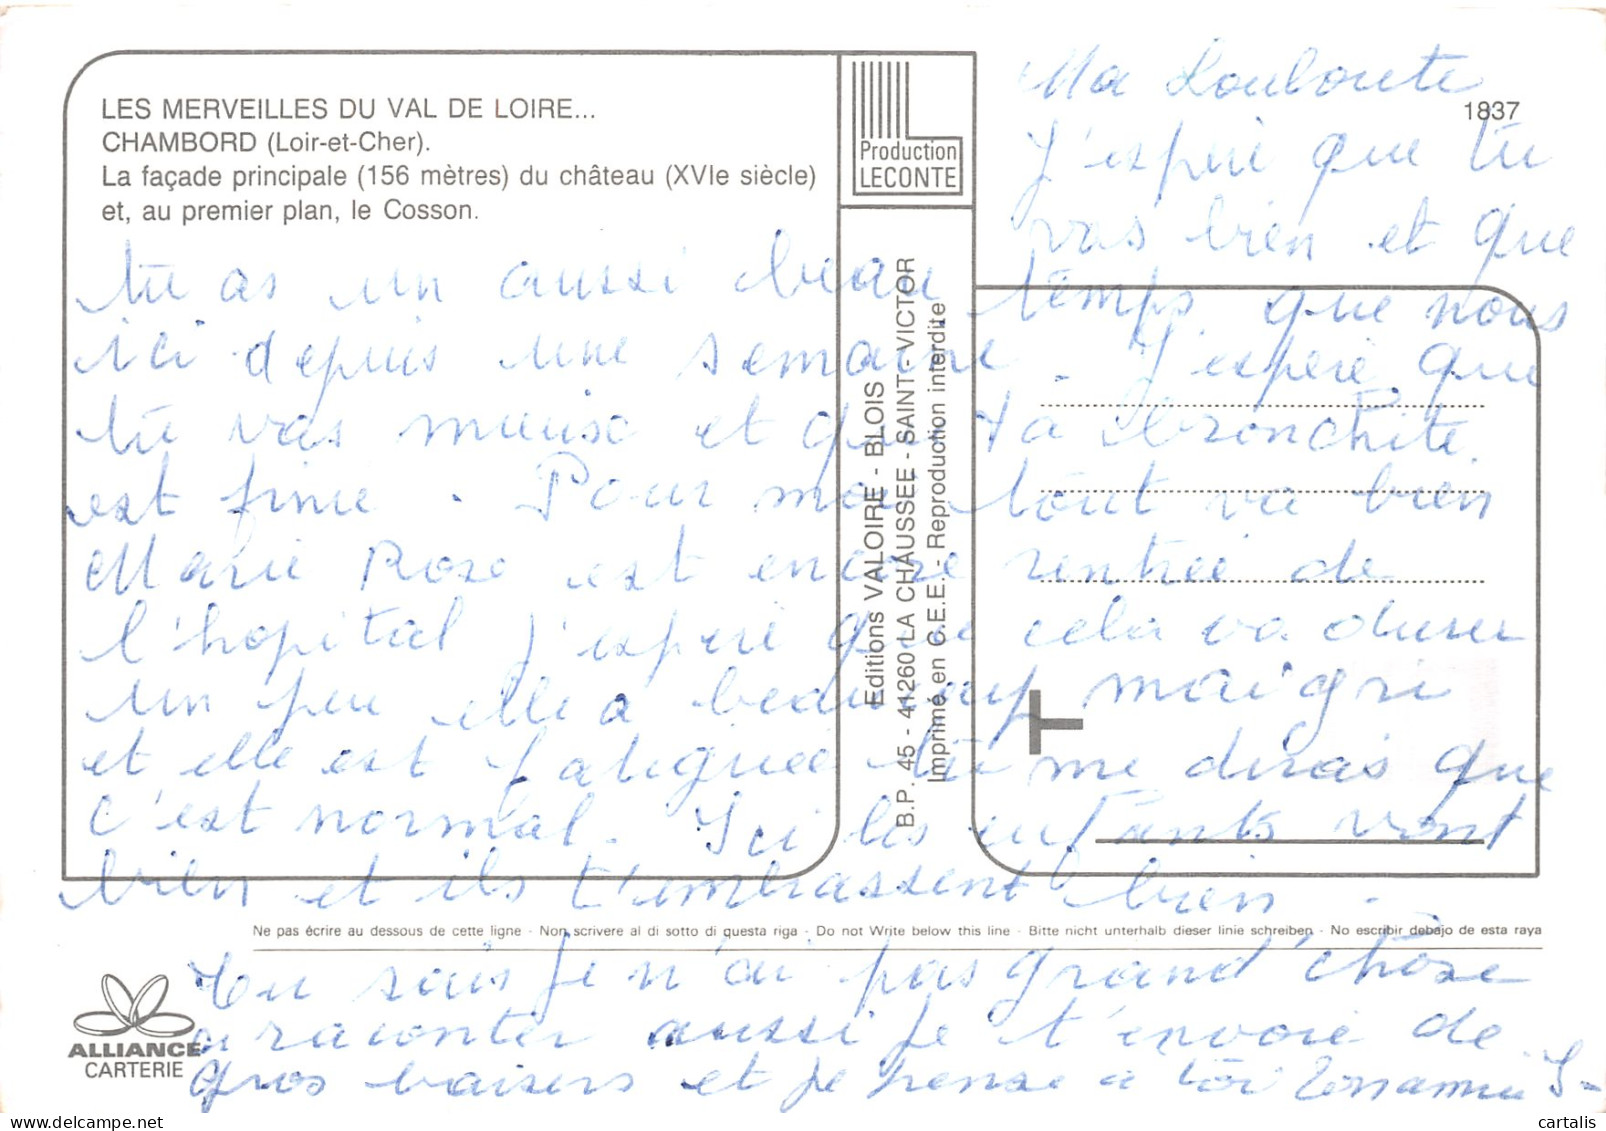 LES MERVEILLES DU VAL DE LOIRE...
CHAMBORD (Loir-et-Cher).
La façade principale (156 mètres) du château (XVIe siècle)
et, au premier plan, le Cosson.
Production
LECONTE
1837
Editions VALOIRE - BLOIS
B.P. 45 - 41260 LA CHAUSSEE - SAINT - VICTOR
Imprimé en C.E.E. - Reproduction interdite
Ma Louloute
J'espere que tu
vas bien et que
tu as un aussi beau temps que nous
ici depuis une semaine. J'espere que
tu vas mieux et que ta bronchite
est finie. Pour moi tout va bien
Marie Rose est encore rentrée de
l'hopital j'espere que cela va durer
un peu elle a beaucoup maigri
et elle est fatiguée tu me diras que
c'est normal. Ici les enfants vont
bien et ils t'embrassent bien.
Ne pas écrire au dessous de cette ligne - Non scrivere al di sotto di questa riga - Do not Write below this line - Bitte nicht unterhalb dieser linie schreiben - No escribir debajo de esta raya
Tu sais je n'ai pas grand'chose
a raconter aussi je t'envoie de
gros baisers et je pense a toi
ALLIANCE
CARTERIE
cartalis